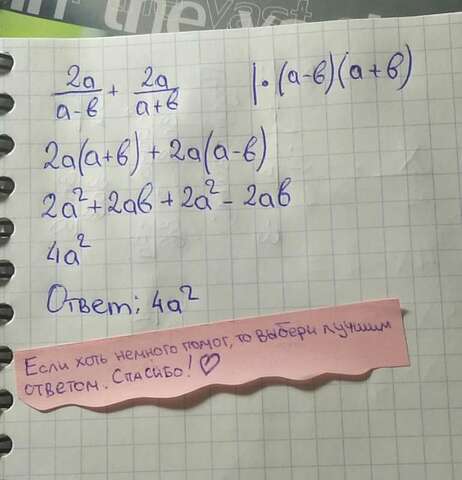 the vast
2a/(a-в) + 2a/(a+в) |·(a-в)(a+в)
2a(a+в) + 2a(a-в)
2a²+2aв+2a²-2aв
4a²
Ответ: 4a²
Если хоть немного помог, то выбери лучшим
ответом. Спасибо! ♡